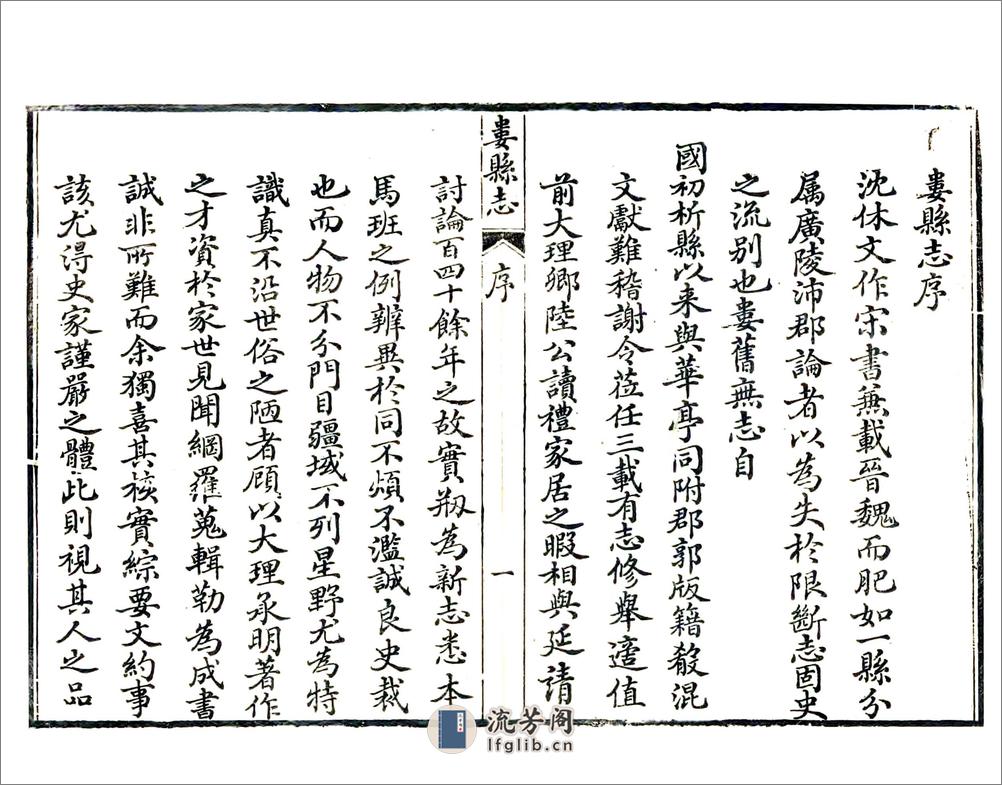 婁縣志序
沈休文作宋書兼載晉魏而肥如一縣分
屬廣陵沛郡論者以為失於限斷志固史
之流別也婁舊無志自
國初析縣以来與華亭同附郡郭版籍殽混
文獻難稽謝令莅任三載有志修舉適值
前大理卿陸公讀禮家居之暇相與延請
婁縣志
序
一
討論百四十餘年之故實刱為新志悉本
馬班之例辨異於同不煩不濫誠良史裁
也而人物不分門目疆域不列星野尤為特
識真不沿世俗之陋者顧以大理承明著作
之才資於家世見聞網羅蒐輯勒為成書
誠非所難而余獨喜其核實綜要文約事
該尤淂史家謹嚴之體此則視其人之品
流芳阁
lfglib.cn